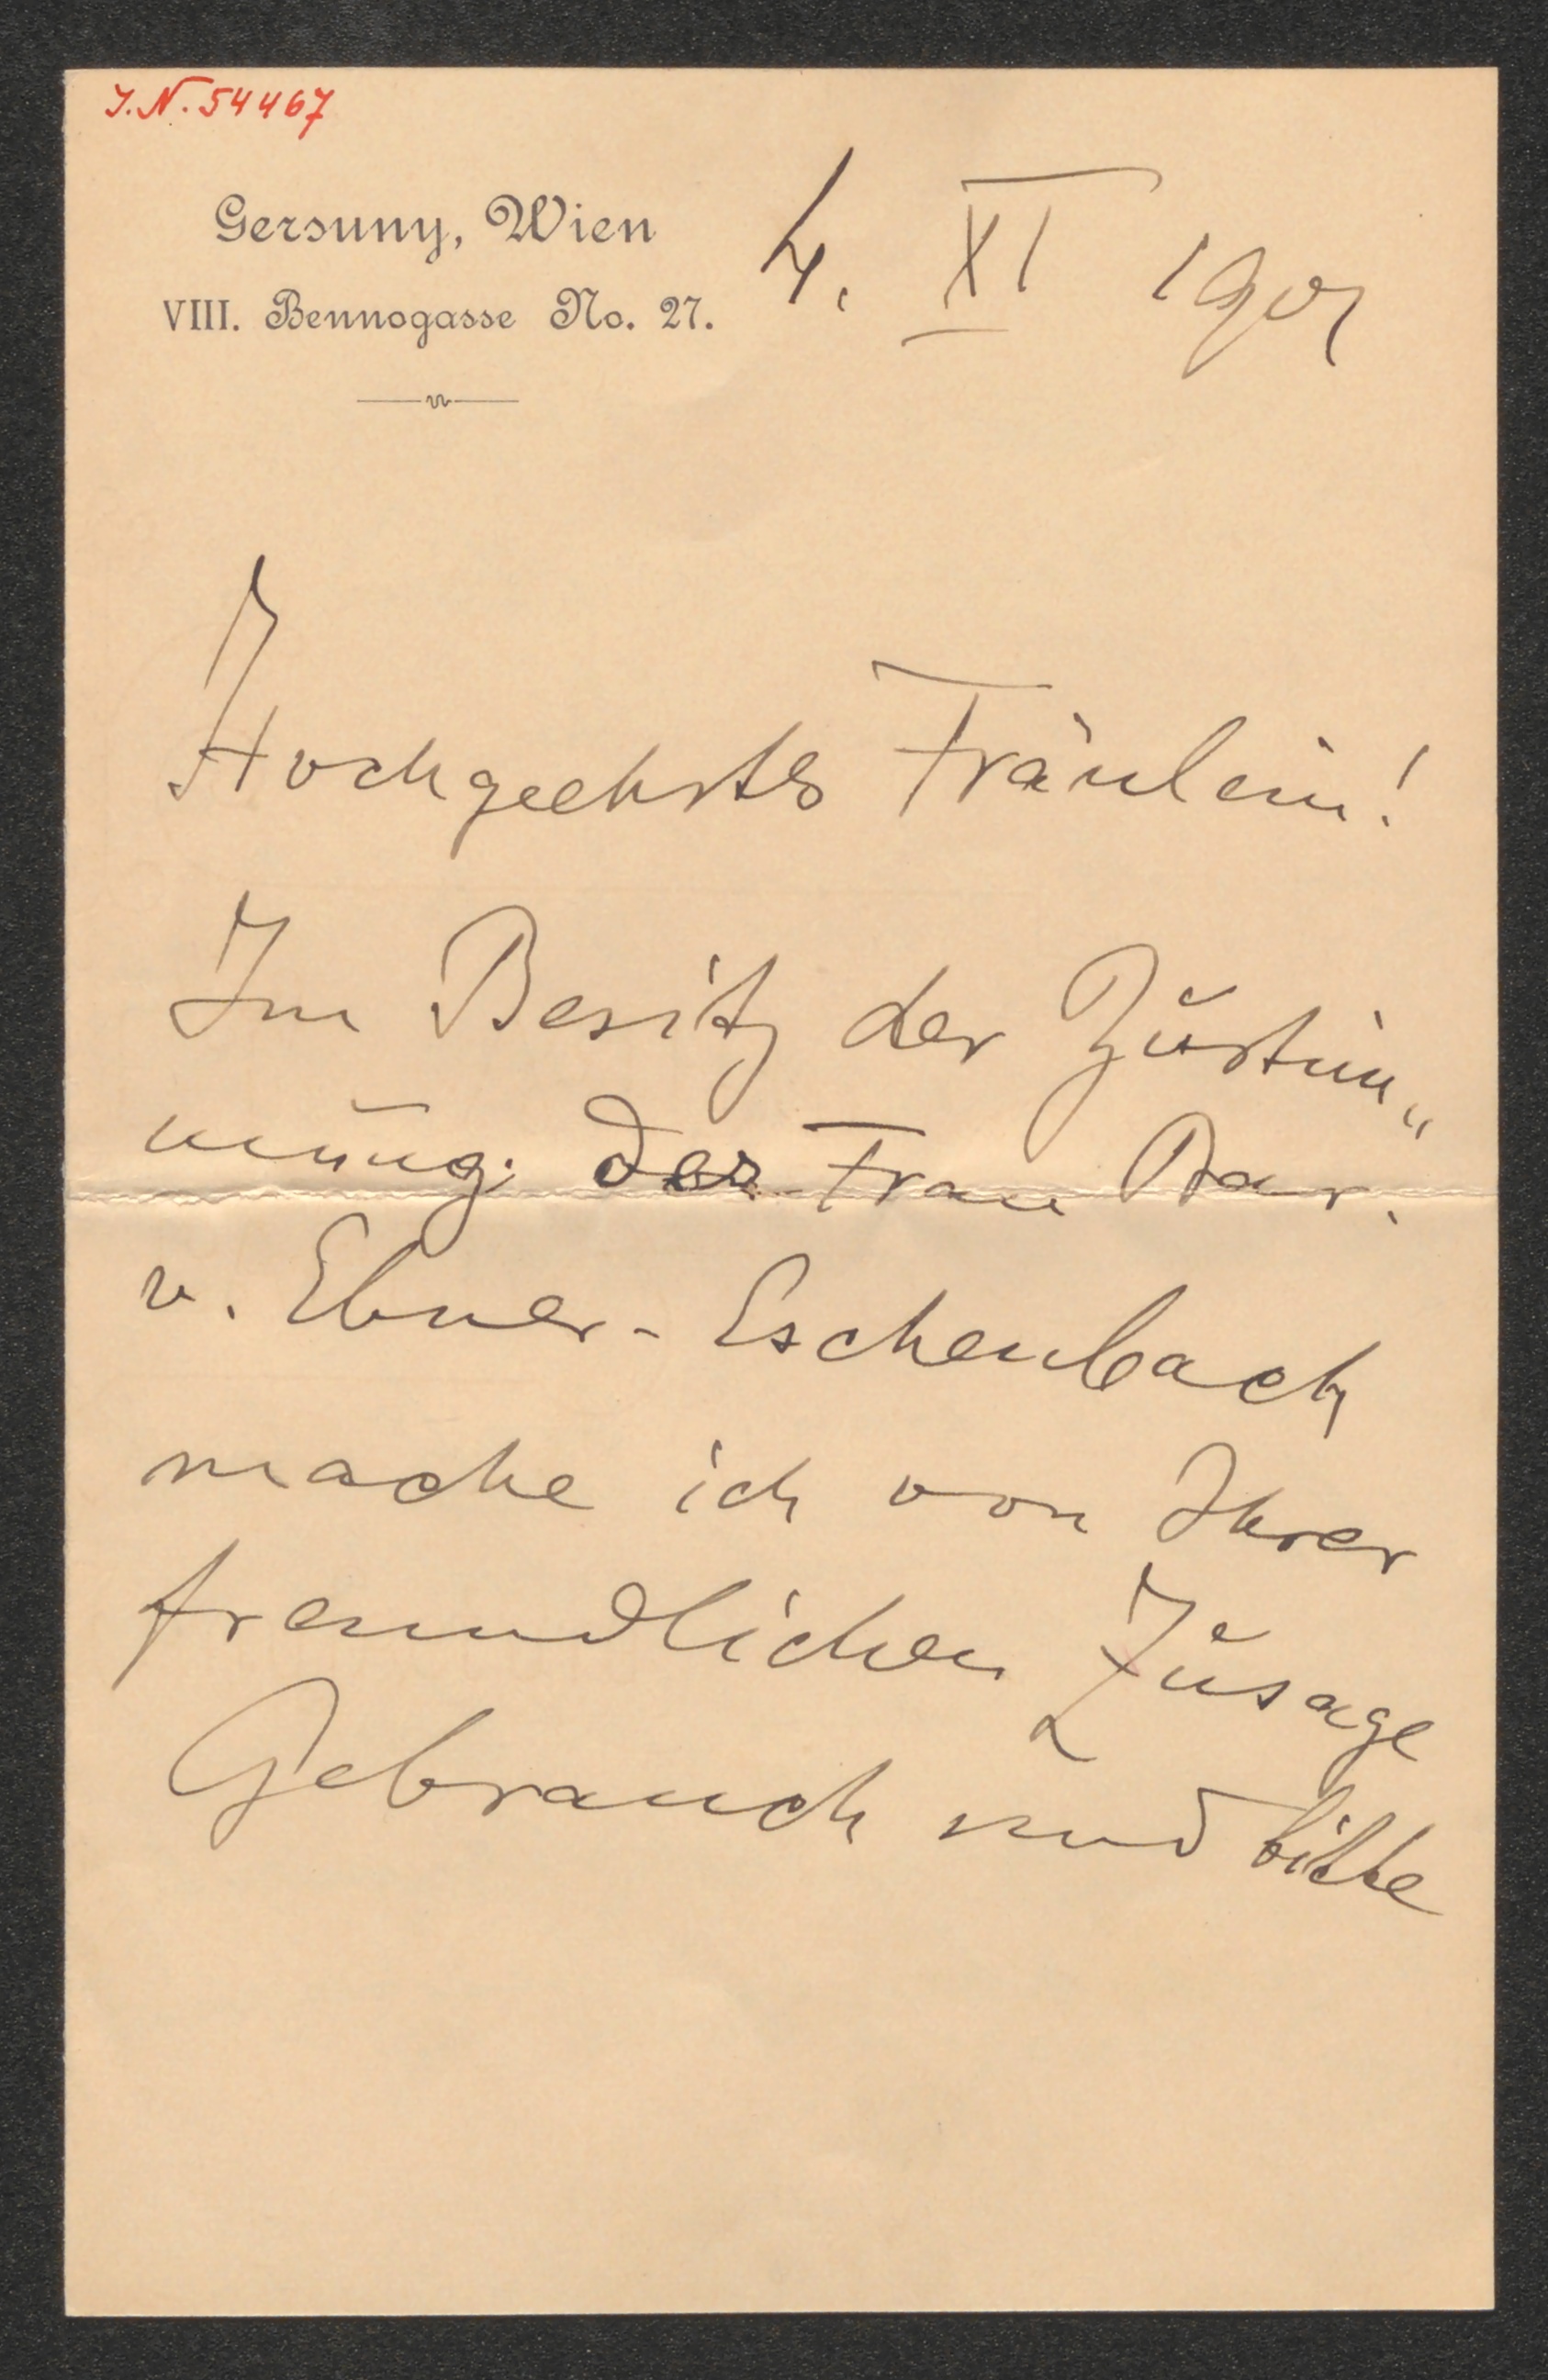 J.N. 54467
Gersuny, Wien
VIII. Bennogasse No. 27.
4. XI 1901
Hochgeehrtes Fräulein!
Im Besitz der Zustim„
mung der Frau Bar.
v. Ebner-Eschenbach
mache ich von Ihrer
freundlichen Zusage
Gebrauch und bitte